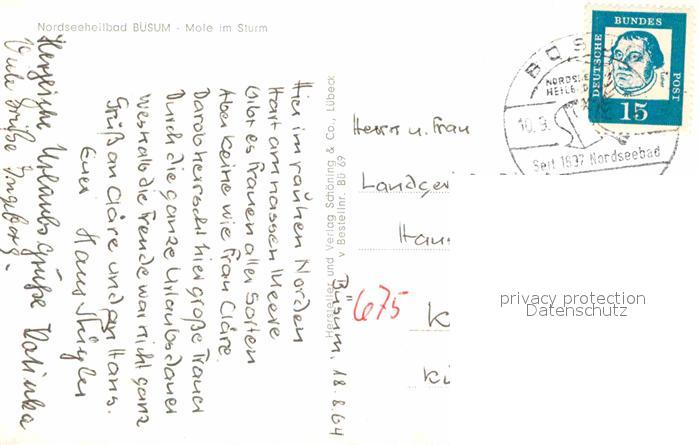 Nordseeheilbad BÜSUM - Mole im Sturm
Büsum, 18.8.64
Hier im rauhen Norden
Hart am nassen Meere
Gibt es Frauen aller Sorten
Aber keine wie Frau Cläre.
Darob herrscht hier große Trauer
Durch die ganze Urlaubsdauer
Weshalb die Freude war nicht ganz
Gruß an Cläre und an Hans.
Euer Hans
Herzliche Urlaubsgrüße
Viele Grüße Ingeborg.
Hersteller und Verlag Schöning & Co., Lübeck
v Bestellnr. Bü 69
Herrn u. Frau
Landger
Han
675 K
Ki
DEUTSCHE BUNDES POST
15
BÜS
NORDSEE
HEILB
10.9.
Seit 1837 Nordseebad
privacy protection
Datenschutz